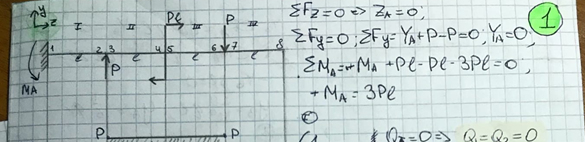 y
z
I II Pl III P IV
1 2 3 4 5 6 7 8
l l l l
MA
P
P P
ΣFz=0 => ZA=0;
ΣFy=0; ΣFy=YA+P-P=0; YA=0;
ΣMA=+MA+Pl-Pl-3Pl=0;
+MA=3Pl
1
=0 => Q1=Q2=0